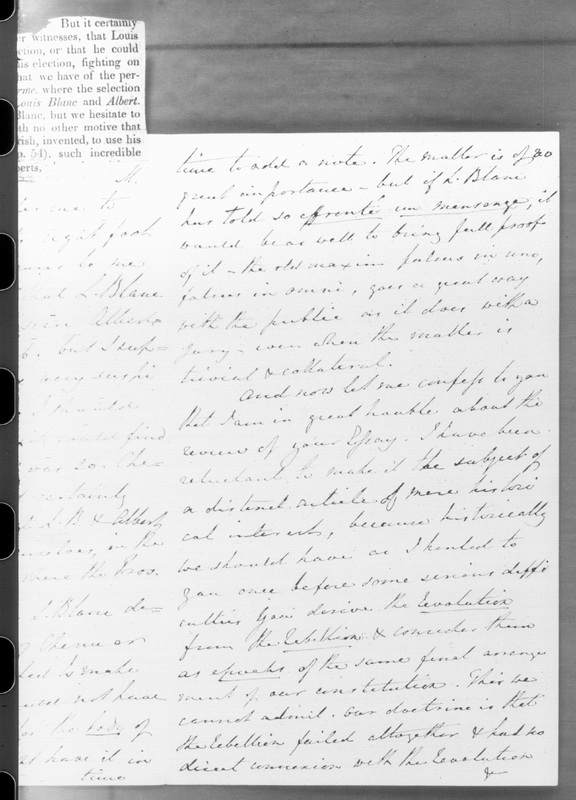 But it certainly
er witnesses, that Louis
ction, or that he could
his election, fighting on
hat we have of the per-
erme, where the selection
Louis Blanc and Albert.
Blanc, but we hesitate to
ith no other motive that
rish, invented, to use his
p. 54), such incredible
perts.
M.
me to
right fool
to me
that L. Blanc
Albert
but I sup-
very suspi
I should
could find
was so. The-
certainly
L. B. & Albert
in the
the Prov.
L. Blanc de-
or
to make
not have
for the body of
have it in
time
time to add a note. The matter is of no
great importance – but if L. Blanc
has told so effronté un mensonge, it
would be as well to bring full proof
of it – the old maxim falsus in uno,
falsus in omni, goes a great way
with the public as it does with a
Jury – even when the matter is
trivial & collateral.
And now let me confess to you
that I am in great trouble about the
review of your Essay. I have been
reluctant to make it the subject of
a distinct article of mere histori
cal interest, because historically
we should have as I hinted to
you once before some serious diffi
culties. You derive the Revolution
from the Rebellion & consider them
as epochs of the same final arrange
ment of our constitution. This we
cannot admit. Our doctrine is that
the Rebellion failed altogether & had no
direct connexion with the Revolution
&